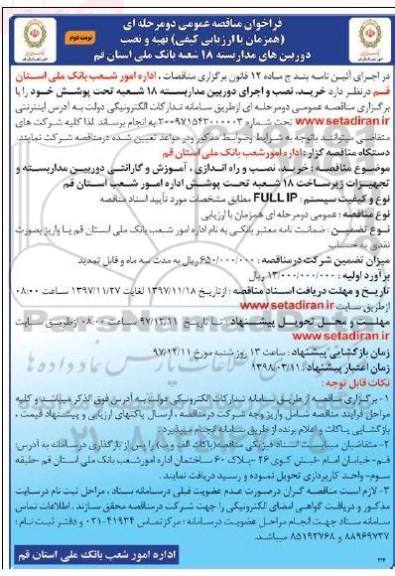 فراخوان مناقصه عمومی دومرحله ای
نوبت دوم
(همزمان با ارزیابی کیفی) تهیه و نصب
دوربین های مداربسته ۱۸ شعبه بانک ملی استان قم
در اجرای آئین نامه بند ج ماده ۱۲ قانون برگزاری مناقصات ، اداره امور شعب بانک ملی استان
قم درنظر دارد خرید، نصب و اجرای دوربین مداربسته ۱۸ شعبه تحت پوشش خود را با
برگزاری مناقصه عمومی دومرحله ای ازطریق سامانه تدارکات الکترونیکی دولت به آدرس اینترنتی
www.setadiran.ir تحت شماره ۲۰۰۹۷۱۵۴۳۰۰۰۰۰۳ به انجام برساند. لذا کلیه شرکت های
متقاضی میتوانند باتوجه به شرایط وضوابط مذکور ودر مواعد تعیین شده درمناقصه شرکت نمایند.
دستگاه مناقصه گزار : اداره امورشعب بانک ملی استان قم
موضوع مناقصه : خرید، نصب و راه اندازی ، آموزش و گارانتی دوربین مداربسته و
تجهیزات زیرساخت ۱۸ شعبه تحت پوشش اداره امور شعب استان قم
نوع و کیفیت سیستم : FULL IP مطابق مشخصات مورد تأیید اسناد مناقصه
نوع مناقصه : عمومی دومرحله ای همزمان با ارزیابی
نوع تضمین : ضمانت نامه معتبر بانکی به نام اداره امور شعب بانک ملی استان قم یا واریز بصورت
نقدی به حساب
میزان تضمین شرکت درمناقصه : ۶۵۰/۰۰۰/۰۰۰ ریال به مدت سه ماه و قابل تمدید
برآورد اولیه : ۱۳/۰۰۰/۰۰۰/۰۰۰ ریال
تاریخ و مهلت دریافت اسناد مناقصه : از تاریخ ۱۳۹۷/۱۱/۱۸ لغایت ۱۳۹۷/۱۱/۲۷ ساعت ۰۸:۰۰
ازطریق سایت www.setadiran.ir
مهلت و محل تحویل پیشنهاد : تا تاریخ ۹۷/۱۲/۱۱ ساعت ۰۸:۰۰ ازطریق سایت
www.setadiran.ir
زمان بازگشایی پیشنهاد : ساعت ۱۳ روز شنبه مورخ ۹۷/۱۲/۱۱
زمان اعتبار پیشنهاد : ۱۳۹۸/۰۳/۱۱
نکات قابل توجه :
۱- برگزاری مناقصه از طریق سامانه تدارکات الکترونیکی دولت به آدرس فوق الذکر میباشد و کلیه
مراحل فرایند مناقصه شامل واریز وجه شرکت درمناقصه ، ارسال پاکتهای ارزیابی و پیشنهاد قیمت ،
بازگشایی پاکات و اعلام برنده ازطریق سامانه انجام میپذیرد.
۲- متقاضیان میبایست اسناد فیزیکی مناقصه پاکات الف را پس از بارگذاری درسامانه به آدرس:
قم- خیابان امام -نبش کوی ۲۶ -پلاک ۶۰ ساختمان اداره امورشعب بانک ملی استان قم -طبقه
سوم- واحد کارپردازی تحویل نموده و رسید دریافت نمایند .
۳- لازم است مناقصه گران درصورت عدم عضویت قبلی درسامانه ستاد ، مراحل ثبت نام درسایت
مذکور و دریافت گواهی امضای الکترونیکی را جهت شرکت درمناقصه محقق سازند . اطلاعات تماس
سامانه ستاد جهت انجام مراحل عضویت درسامانه : مرکزتماس ۴۱۹۳۴-۰۲۱ و دفتر ثبت نام :
۸۸۹۶۹۷۳۷ و ۸۵۱۹۳۷۶۸ میباشد.
اداره امور شعب بانک ملی استان قم